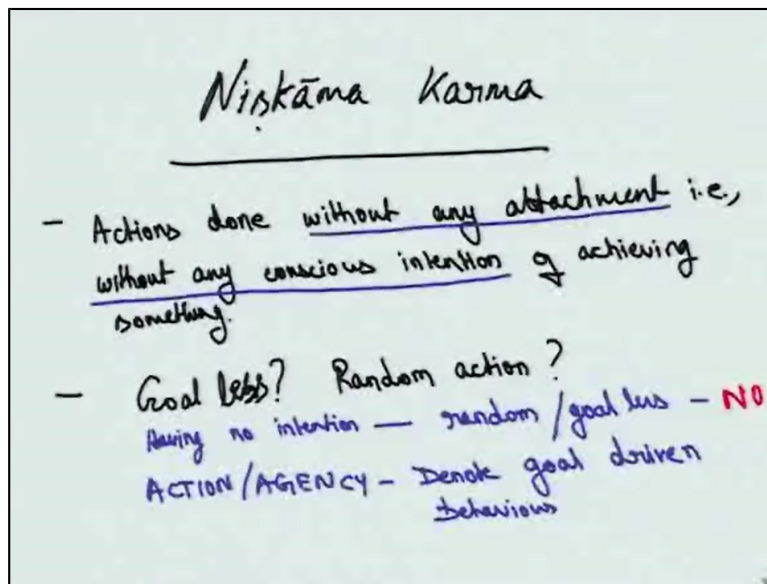 Niṣkāma Karma
- Actions done without any attachment i.e.,
without any conscious intention of achieving
something.
- Goal less? Random action?
Having no intention — random/goal less - NO
ACTION/AGENCY - Denote goal driven
behaviours